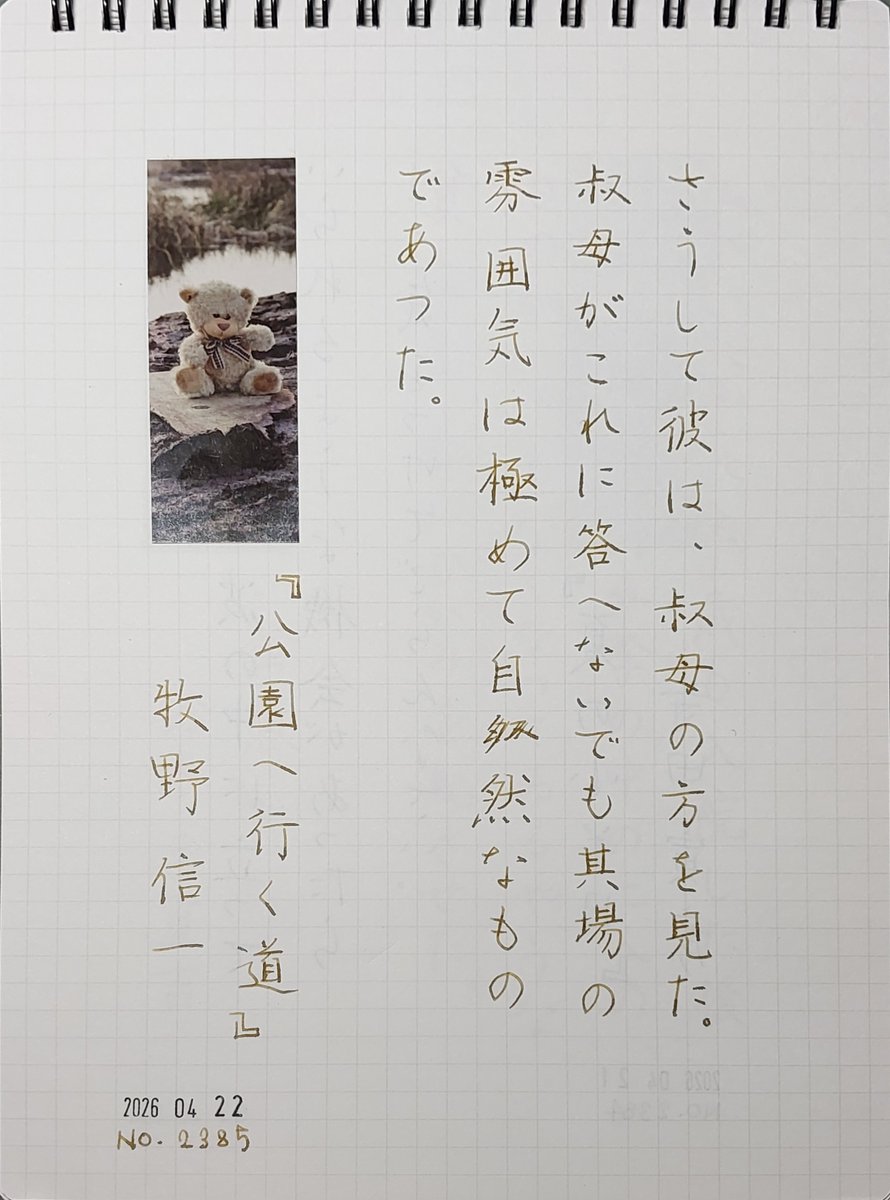 さうして彼は、叔母の方を見た。
叔母がこれに答へないでも其場の
雰囲気は極めて自然なもの
であつた。
『公園へ行く道』
牧野信一
2026 04 22
NO. 2385